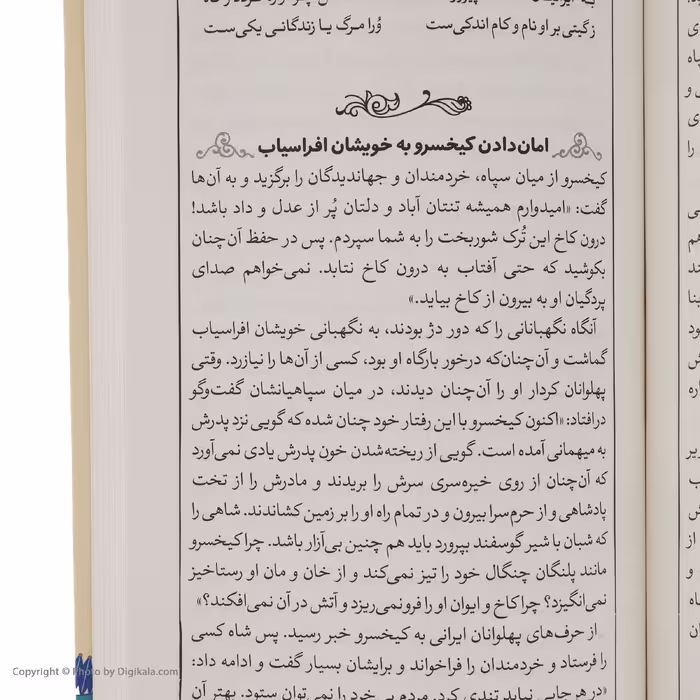 زگیتی بر او نام و کام اندکی‌ست    وُرا مرگ با زندگانی یکی‌ست
امان‌دادن کیخسرو به خویشان افراسیاب
کیخسرو از میان سپاه، خردمندان و جهاندیدگان را برگزید و به آن‌ها
گفت: «امیدوارم همیشه تنتان آباد و دلتان پُر از عدل و داد باشد!
درون کاخ این تُرک شوربخت را به شما سپردم. پس در حفظ آن چنان
بکوشید که حتی آفتاب به درون کاخ نتابد. نمی‌خواهم صدای
پردگیان او به بیرون از کاخ بیاید.»
آنگاه نگهبانانی را که دور دژ بودند، به نگهبانی خویشان افراسیاب
گماشت و آن‌چنان‌که درخور بارگاه او بود، کسی از آن‌ها را نیازرد. وقتی
پهلوانان کردار او را آن‌چنان دیدند، در میان سپاهیانشان گفت‌وگو
درافتاد: «اکنون کیخسرو با این رفتار خود چنان شده که گویی نزد پدرش
به میهمانی آمده است. گویی از ریخته‌شدن خون پدرش یادی نمی‌آورد
که آن‌چنان از روی خیره‌سری سرش را بریدند و مادرش را از تخت
پادشاهی و از حرم‌سرا بیرون و در تمام راه او را بر زمین کشاندند. شاهی را
که شبان با شیر گوسفند بپرورد باید هم چنین بی‌آزار باشد. چرا کیخسرو
مانند پلنگان چنگال خود را تیز نمی‌کند و از خان و مان او رستاخیز
نمی‌انگیزد؟ چرا کاخ و ایوان او را فرونمی‌ریزد و آتش در آن نمی‌افکند؟»
از حرف‌های پهلوانان ایرانی به کیخسرو خبر رسید. پس شاه کسی
را فرستاد و خردمندان را فراخواند و برایشان بسیار گفت و ادامه داد:
«در هرجایی نباید تندی کرد. مردم بی خرد را نمی‌توان ستود. بهتر آن
Copyright © Photo by Digikala.com